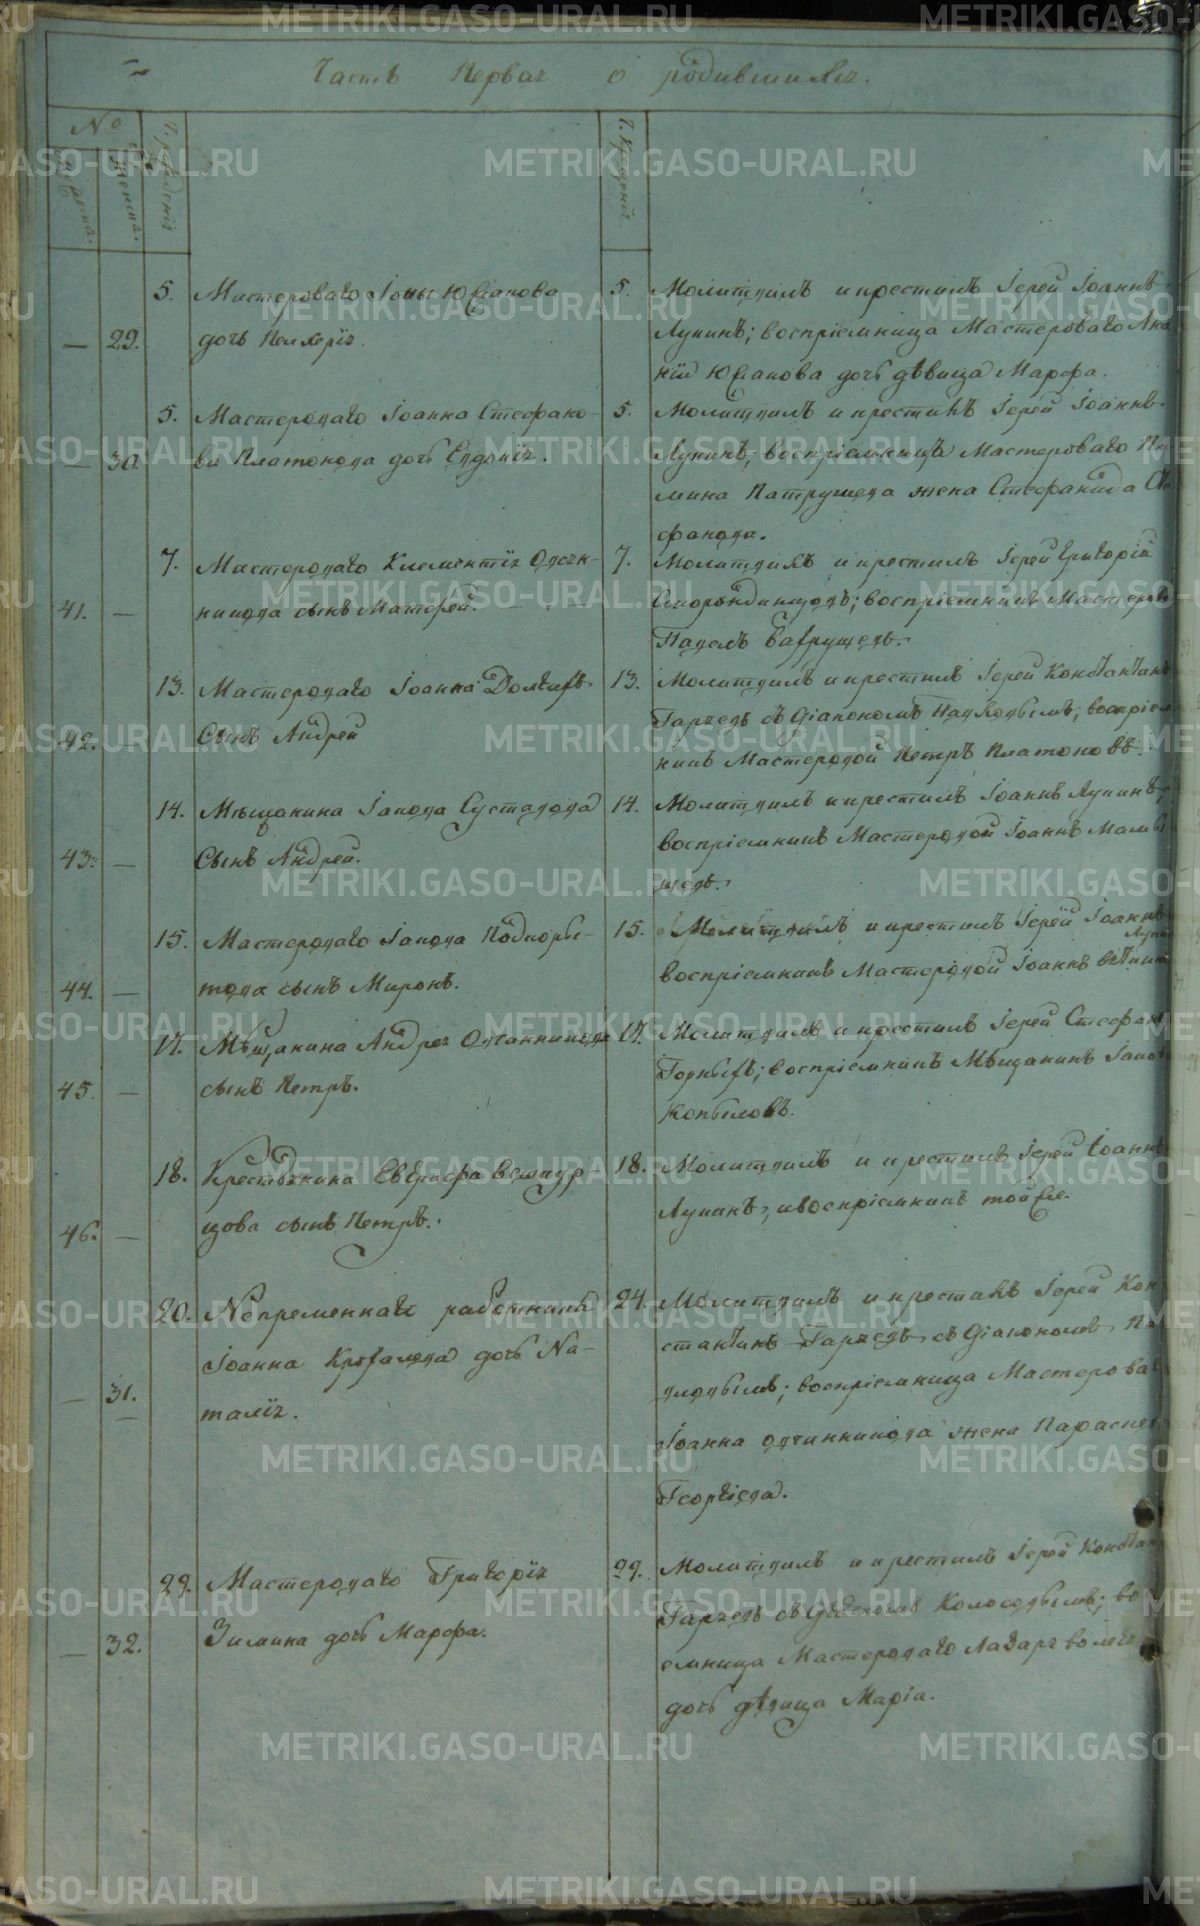 Часть Первая о родившихся.
№
мужеска.
женска.
Ч. рожденія
Ч. крещенія
5. Мастероваго Іоны Юрганова
— 29. дочь Пелагерія.
5. Молитвилъ и крестилъ Іерей Іоаннъ
Лунинъ; воспріемница Мастероваго
Юрганова дочь дѣвица Марфа.
5. Мастероваго Іоанна Стефано-
— 30. ва Платонова дочь Евдокія.
5. Молитвилъ и крестилъ Іерей Іоаннъ
Лунинъ, воспріемница Мастероваго
Патрушева жена Стефанида
фанова.
7. Мастероваго Климентія Овсян-
41. — никова сынъ Матфей. —
7. Молитвилъ и крестилъ Іерей Григорій
Смородинцовъ; воспріемникъ Мастеров
Павелъ Вахрушевъ.
13. Мастероваго Іоанна Долгихъ
42. — Сынъ Андрей
13. Молитвилъ и крестилъ Іерей Константинъ
Гаряевъ съ Діакономъ; воспріем
никъ Мастеровой Петръ Платоновъ.
14. Мѣщанина Іакова Суставова
43. — Сынъ Андрей.
14. Молитвилъ и крестилъ Іоаннъ Лунинъ;
воспріемникъ Мастеровой Іоаннъ Мамы
шевъ.
15. Мастероваго Іакова Подкоры-
44. — това сынъ Миронъ.
15. Молитвилъ и крестилъ Іерей Іоаннъ
Лунин
воспріемникъ Мастеровой Іоаннъ
17. Мѣщанина Андрея Овчинникова
45. — сынъ Петръ.
17. Молитвилъ и крестилъ Іерей Стефан
Горныхъ; воспріемникъ Мѣщанинъ Іаков
Копыловъ.
18. Крестьянина Евграфа
46. — цова сынъ Петръ.
18. Молитвилъ и крестилъ Іерей Іоаннъ
Лунинъ, и воспріемникъ той же.
20. Непременнаго работника
Іоанна дочь На-
— 31. талія.
24. Молитвилъ и крестилъ Іерей Кон
стантинъ Гаряевъ съ Діакономъ
воспріемница Мастероваг
Іоанна Овчинникова жена Параскев
Георгіева.
29. Мастероваго Григорія
— 32. Зимина дочь Марфа.
29. Молитвилъ и крестилъ Іерей Констан
Гаряевъ съ Дьякономъ Колосовымъ; во
емница Мастероваго Лазаря
дочь дѣвица Марія.
METRIKI.GASO-URAL.RU